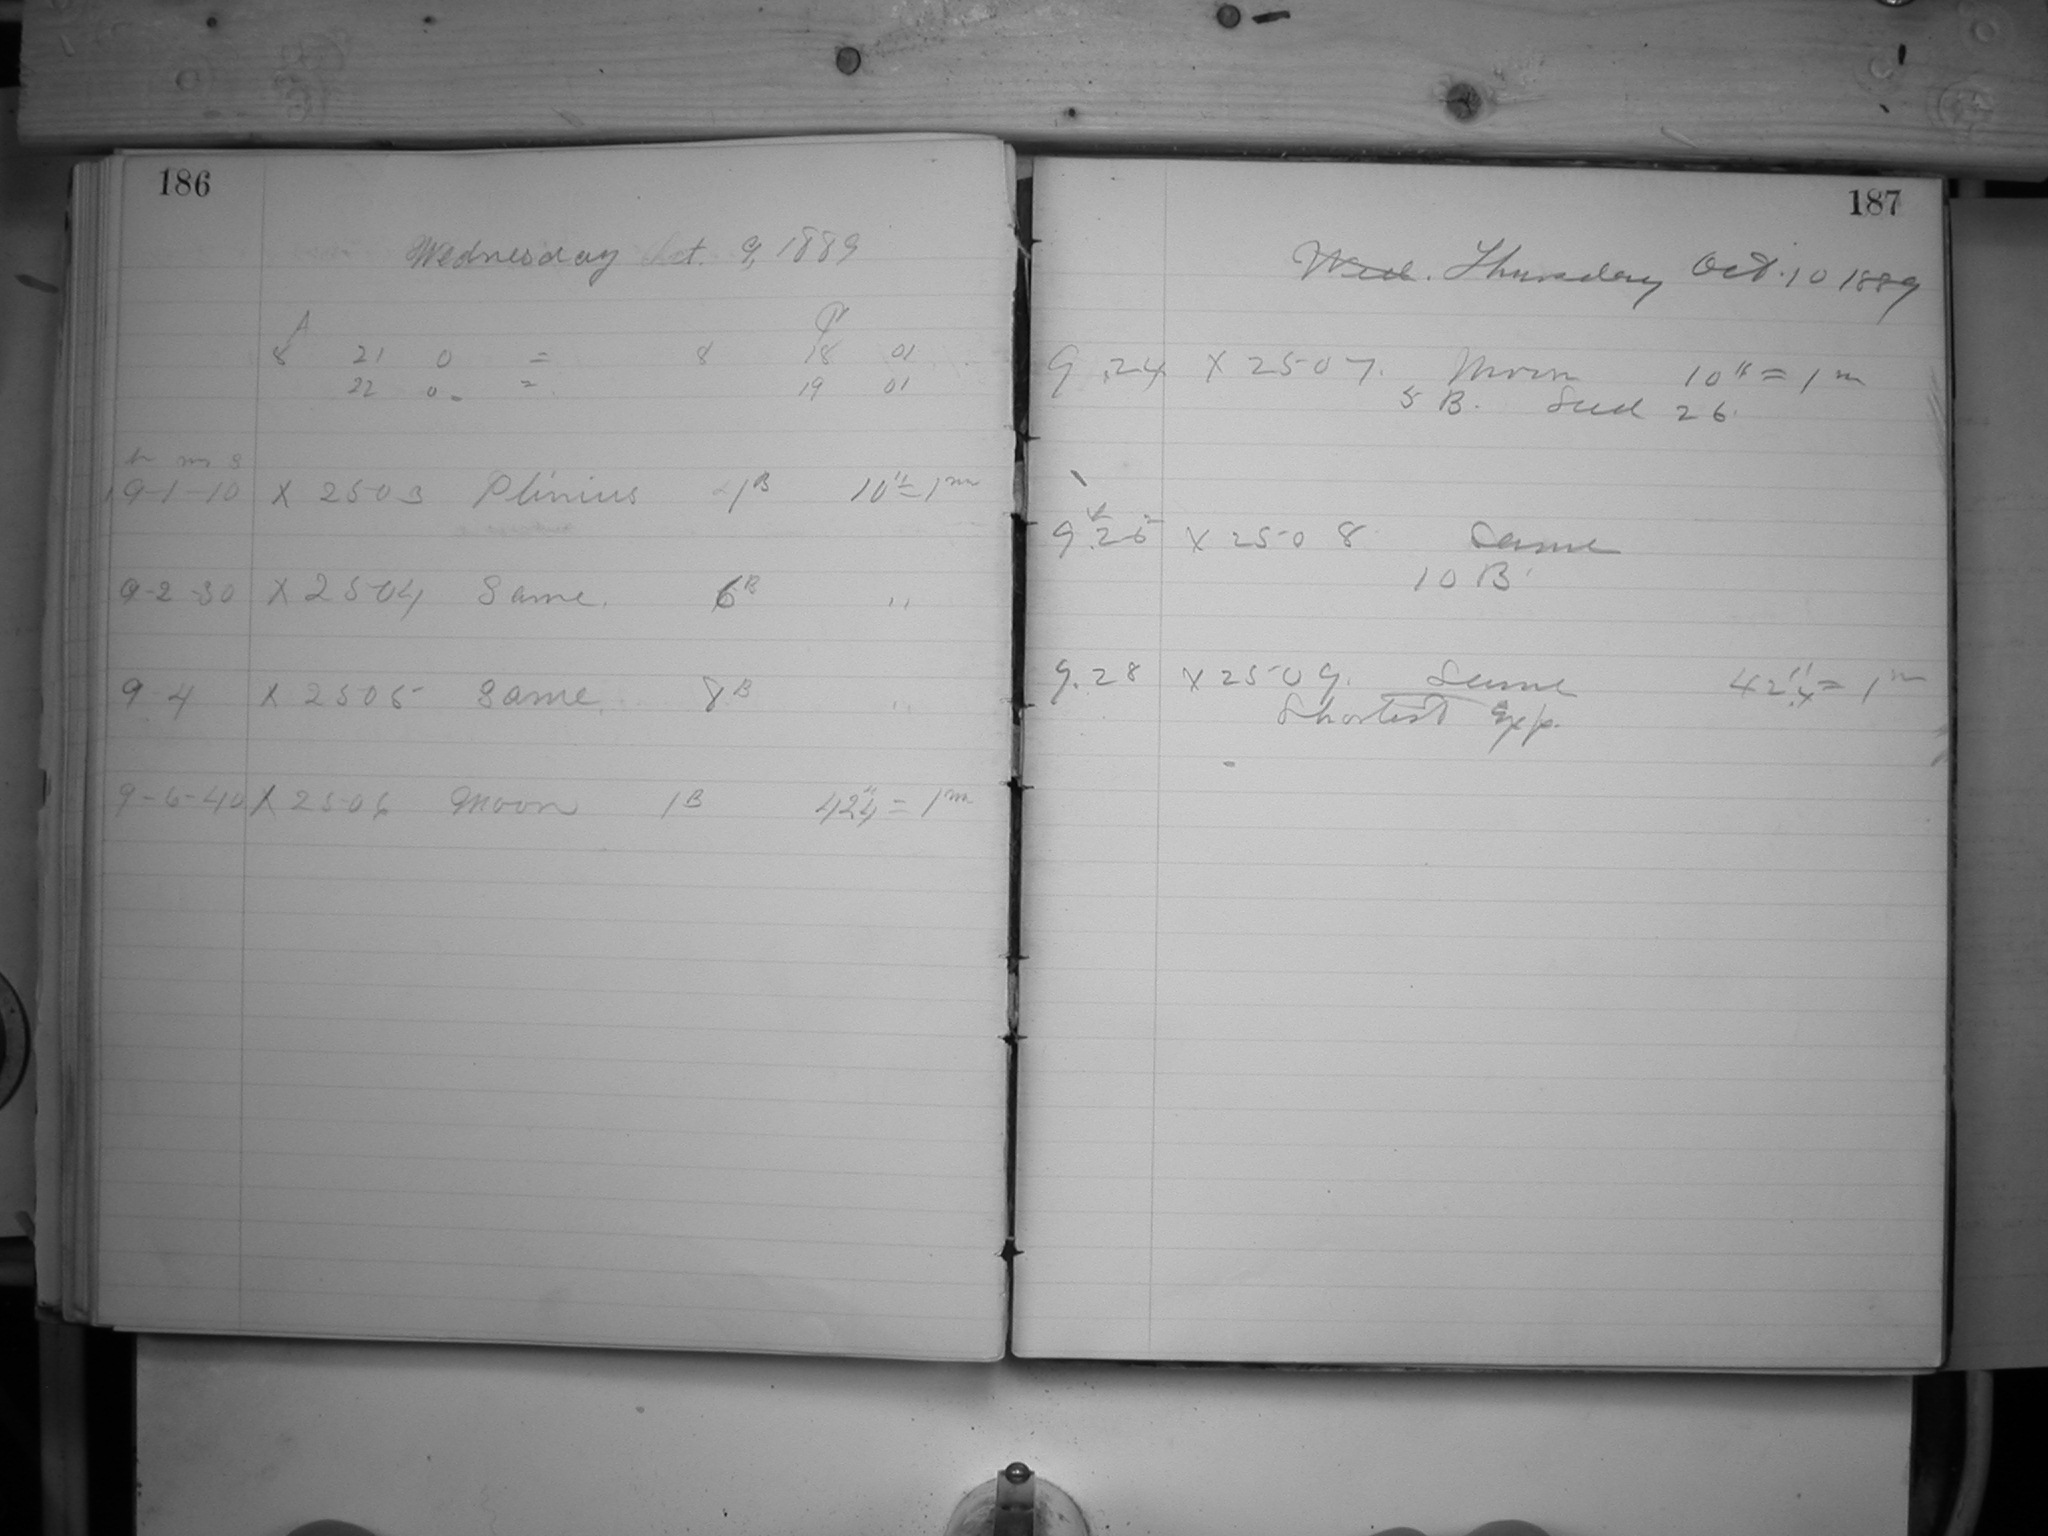 186
Wednesday Oct. 9, 1889
8 21 0 = 8 18 01
22 0 = 19 01
h m s
9-1-10 X 2503 Plinius 1B 10" = 1m
9-2-30 X 2504 Same. 6B "
9 4 X 2505 Same 8B "
9-6-40 X 2506 Moon 1B 42".4 = 1m
187
Wed. Thursday Oct. 10 1889
9.24 X 2507. Moon 10" = 1m
5 B. Seed 26
9.26 X 2508 Same
10 B
9.28 X 2509. Same 42".4 = 1m
Shortest Exp.